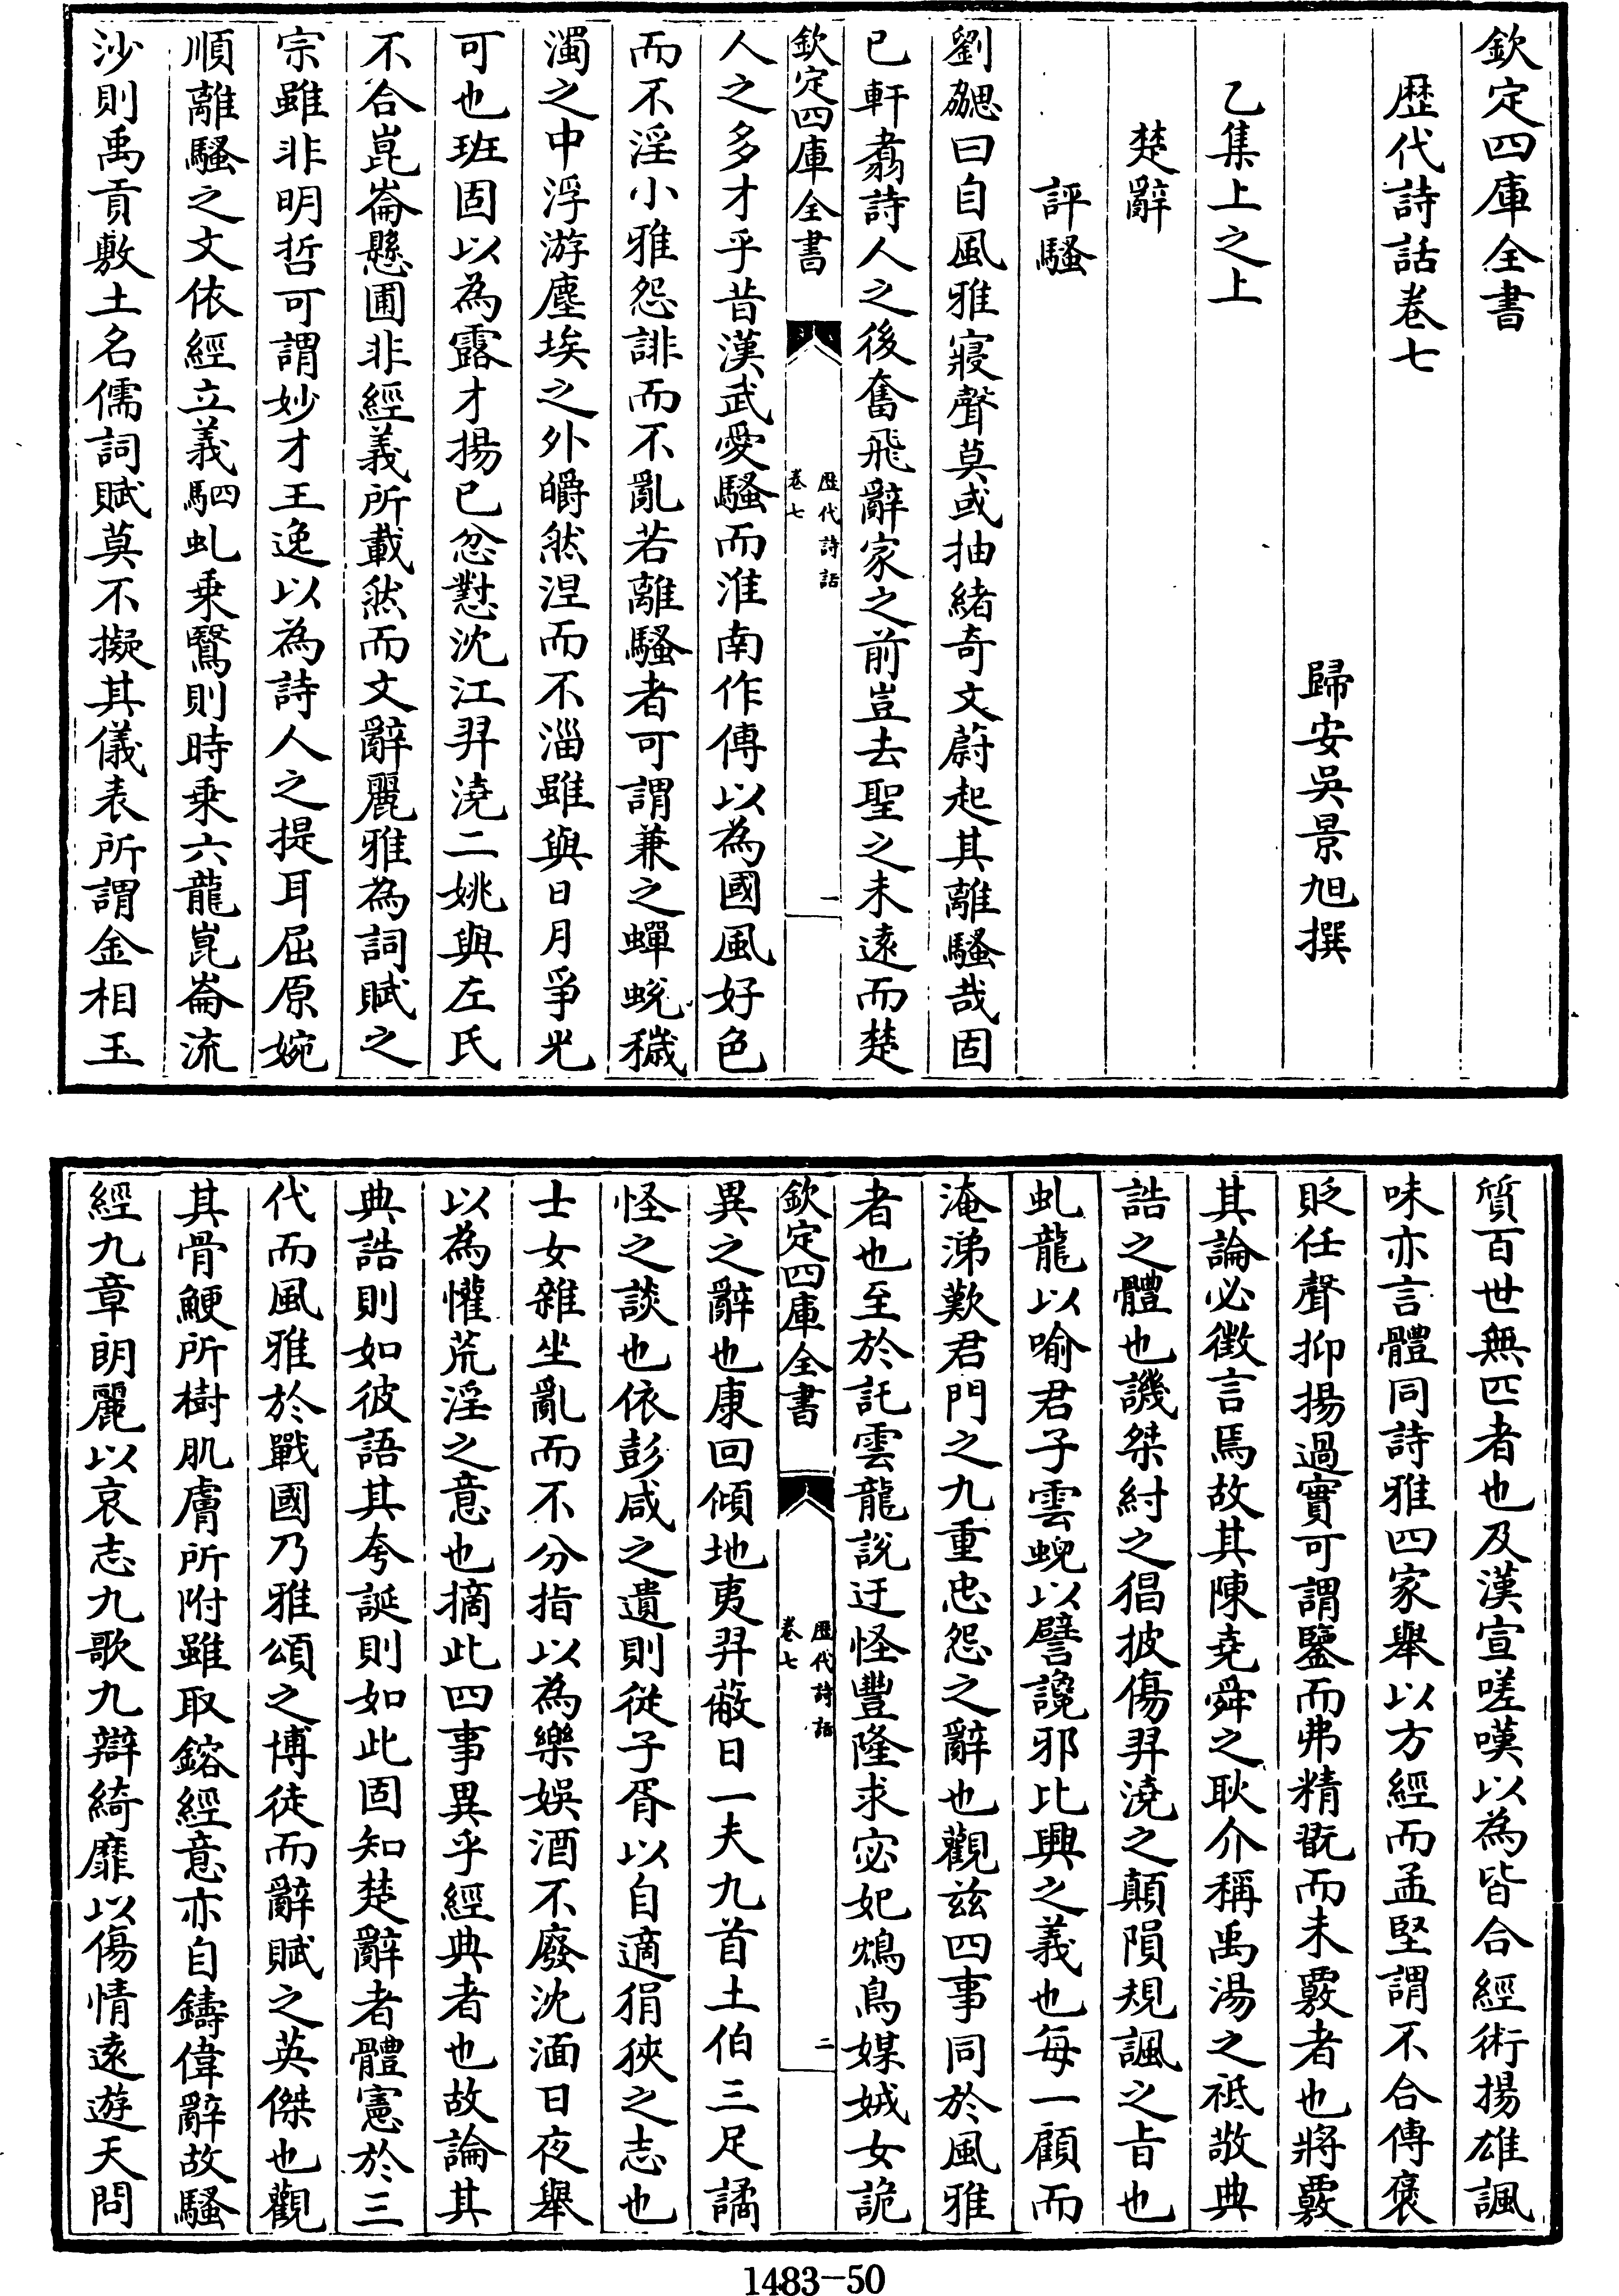 欽定四庫全書
歴代詩話卷七
歸安吳景旭撰
乙集上之上
楚辭
評騷
劉勰曰自風雅寢聲莫或抽緒奇文蔚起其離騷哉固
已軒翥詩人之後奮飛辭家之前豈去聖之未遠而楚
欽定四庫全書
歴代詩話
卷七
一
人之多才乎昔漢武愛騷而淮南作傳以為國風好色
而不淫小雅怨誹而不亂若離騷者可謂兼之蟬蛻穢
濁之中浮游塵埃之外皭然涅而不淄雖與日月爭光
可也班固以為露才揚已忿懟沈江羿澆二姚與左氏
不合崑崙懸圃非經義所載然而文辭麗雅為詞賦之
宗雖非明哲可謂妙才王逸以為詩人之提耳屈原婉
順離騷之文依經立義駟虬乘鷖則時乘六龍崑崙流
沙則禹貢敷土名儒詞賦莫不擬其儀表所謂金相玉
質百世無匹者也及漢宣嗟嘆以為皆合經術揚雄諷
味亦言體同詩雅四家舉以方經而孟堅謂不合傳褒
貶任聲抑揚過實可謂鑒而弗精翫而未覈者也將覈
其論必徵言焉故其陳堯舜之耿介稱禹湯之祗敬典
誥之體也譏桀紂之猖披傷羿澆之顛隕規諷之旨也
虬龍以喻君子雲蜺以譬讒邪比興之義也每一顧而
淹涕歎君門之九重忠怨之辭也觀茲四事同於風雅
者也至於託雲龍說迂怪豐隆求宓妃鴆鳥媒娀女詭
欽定四庫全書
歴代詩話
卷七
二
異之辭也康回傾地夷羿蔽日一夫九首土伯三足譎
怪之談也依彭咸之遺則從子胥以自適狷狹之志也
士女雜坐亂而不分指以為樂娛酒不廢沈湎日夜舉
以為懽荒淫之意也摘此四事異乎經典者也故論其
典誥則如彼語其夸誕則如此固知楚辭者體憲於三
代而風雅於戰國乃雅頌之博徒而辭賦之英傑也觀
其骨鯁所樹肌膚所附雖取鎔經意亦自鑄偉辭故騷
經九章朗麗以哀志九歌九辯綺靡以傷情遠遊天問
1483-50